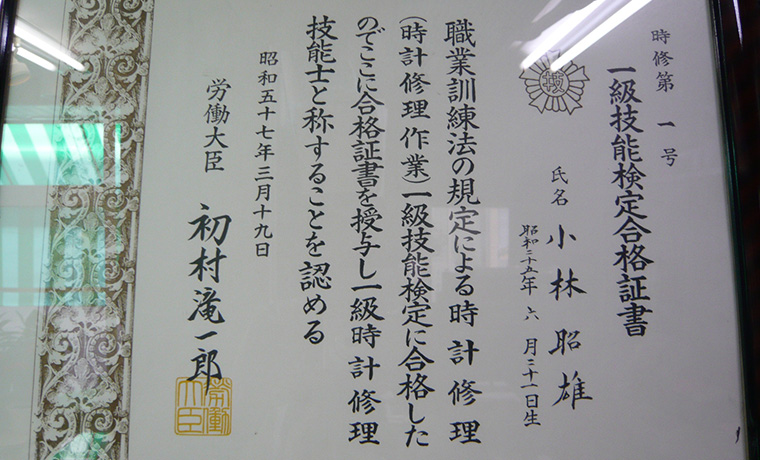 時修第一号
一級技能検定合格証書
技
氏名 小林昭雄
昭和二十五年六月二十一日生
職業訓練法の規定による時計修理
(時計修理作業)一級技能検定に合格した
のでここに合格証書を授与し一級時計修理
技能士と称することを認める
昭和五十七年三月十九日
労働大臣 初村滝一郎
労働大臣